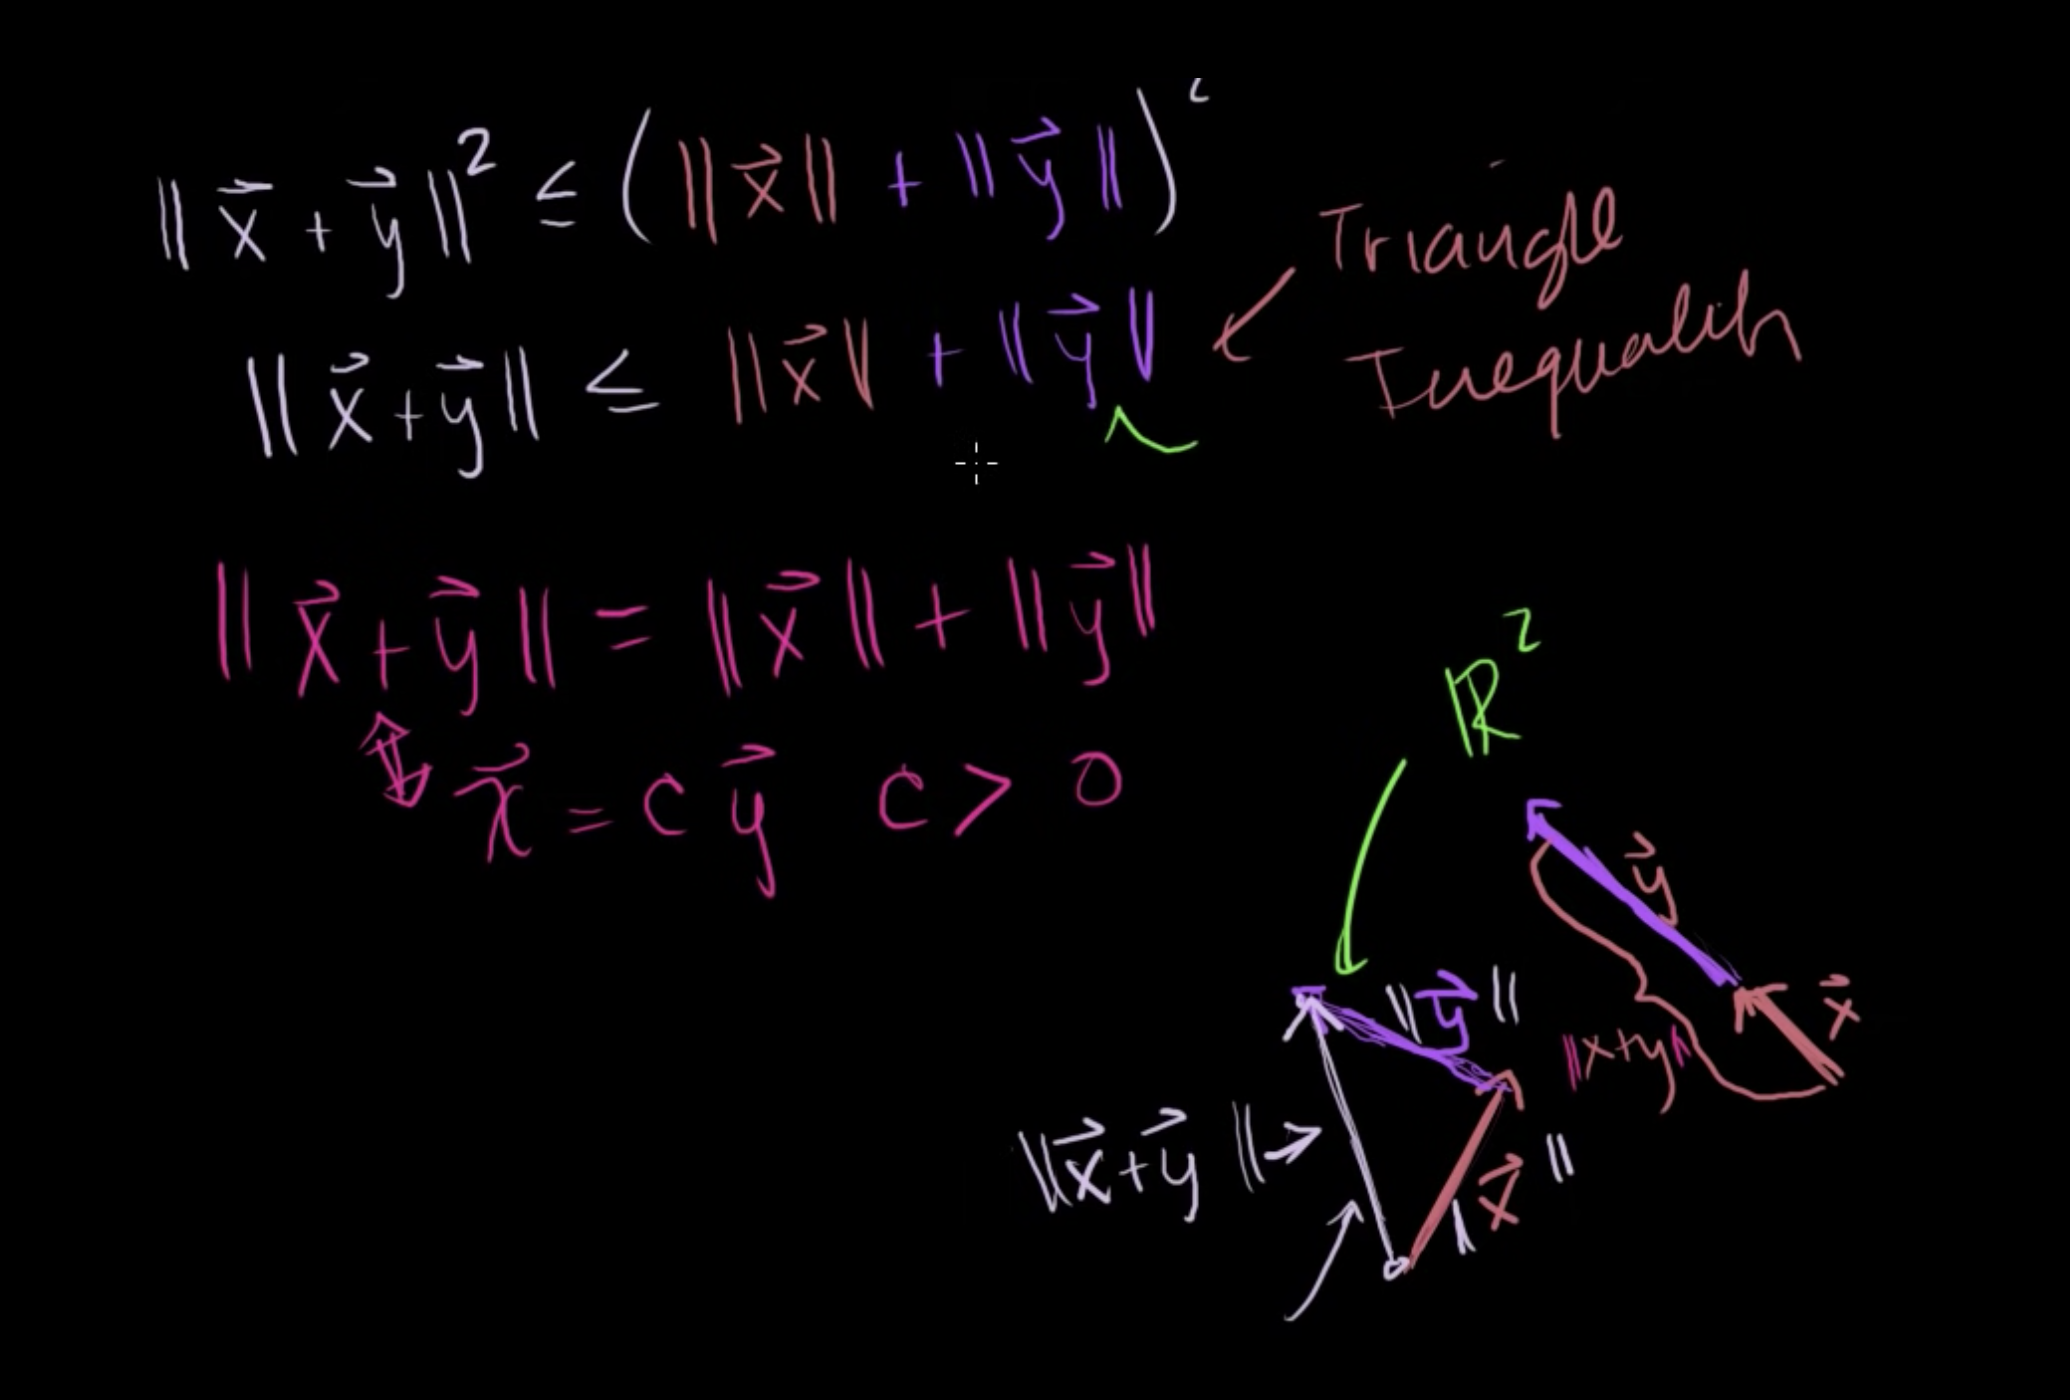 ‖x⃗ + y⃗‖² ≤ (‖x⃗‖ + ‖y⃗‖)²
‖x⃗+y⃗‖ ≤ ‖x⃗‖ + ‖y⃗‖
Triangle
Inequality
‖x⃗+y⃗‖ = ‖x⃗‖ + ‖y⃗‖
⇕ x⃗ = c y⃗ c > 0
ℝ²
y⃗
x⃗
‖x+y‖
‖y⃗‖
‖x⃗+y⃗‖→
‖x⃗‖